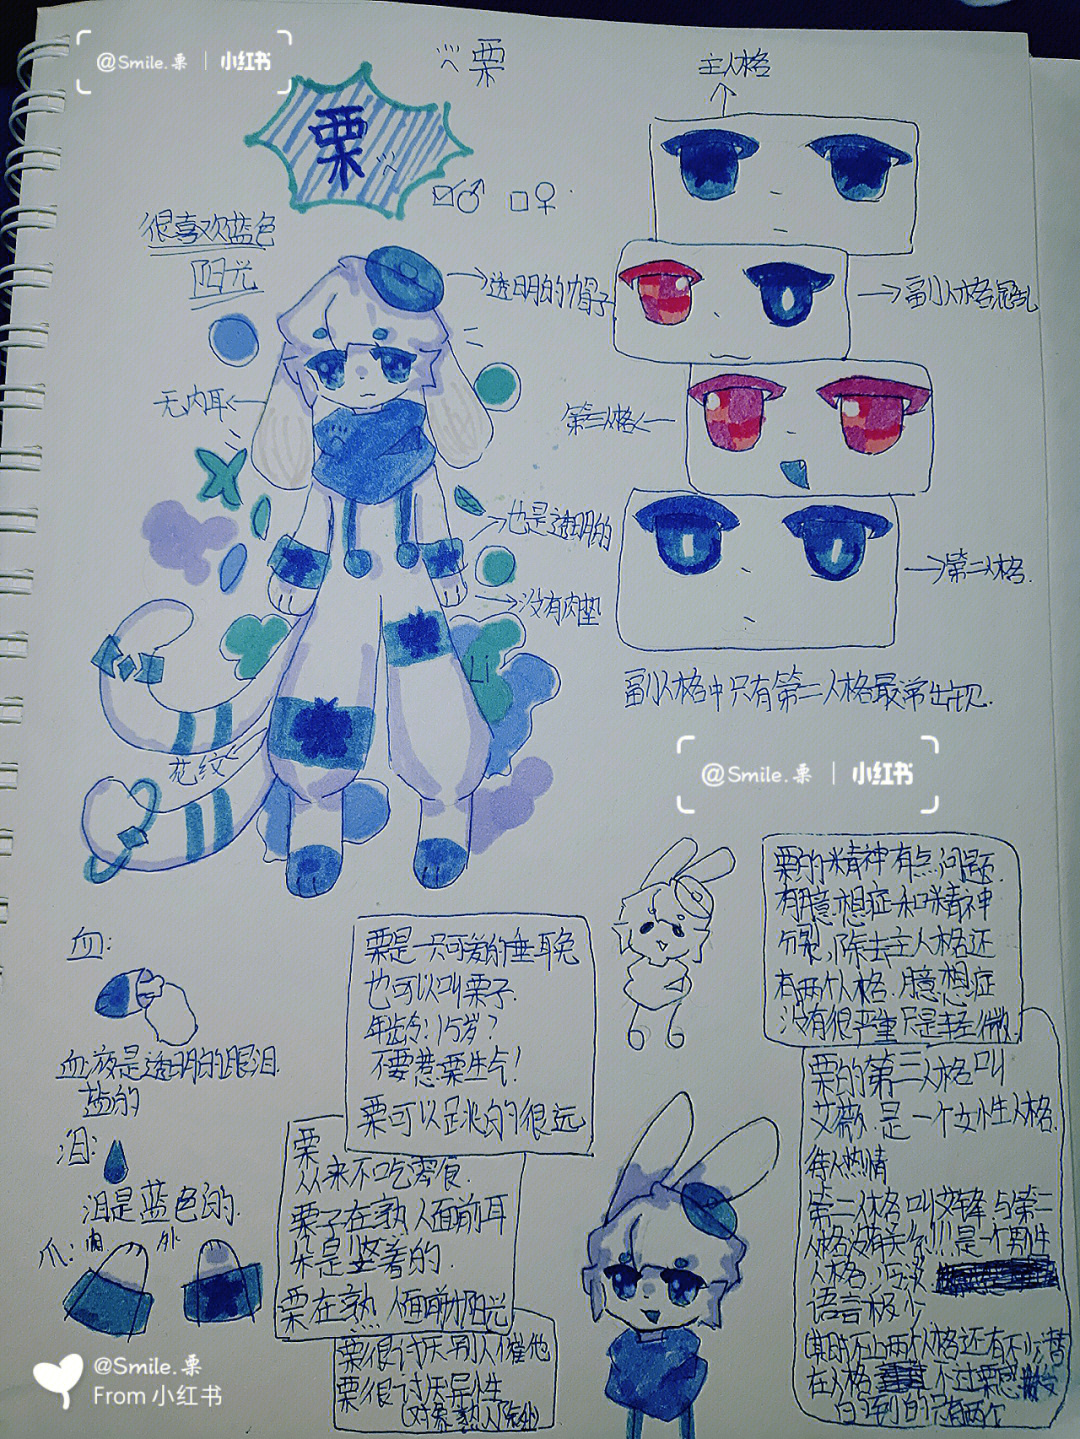 @Smile.栗 | 小红书
栗
主人格
栗
很喜欢蓝色
阳光
透明的帽子
副人格混乱
无内耳
第三人格
也是透明的
第二人格.
没有肉垫
Li
副人格中只有第二人格最常出现.
花纹
@Smile.栗 | 小红书
血:
血液是透明的眼泪.
盐的
泪:
泪是蓝色的.
爪:
内 外
栗是一只可爱的垂耳兔
也可以叫栗子.
年龄:15岁?
不要惹栗生气!
栗可以跳的很远
栗
从来不吃零食.
栗子在熟人面前耳
朵是竖着的.
栗在熟人面前阳光
栗很讨厌别人催他
栗很讨厌异性
(对象熟人除外)
栗的精神有点问题.
有臆想症和精神
分裂,除去主人格还
有两个人格.臆想症
没有很严重只是轻微.
栗的第三人格叫
艾薇.是一个女性人格.
待人热情
第二人格叫艾锋与第三
人格没有关系!!!是一个男性
人格.沉寂
语言极少
(其时不止两个人格还有不少潜
在人格 不过栗感
的到的只有两个
@Smile.栗
From 小红书